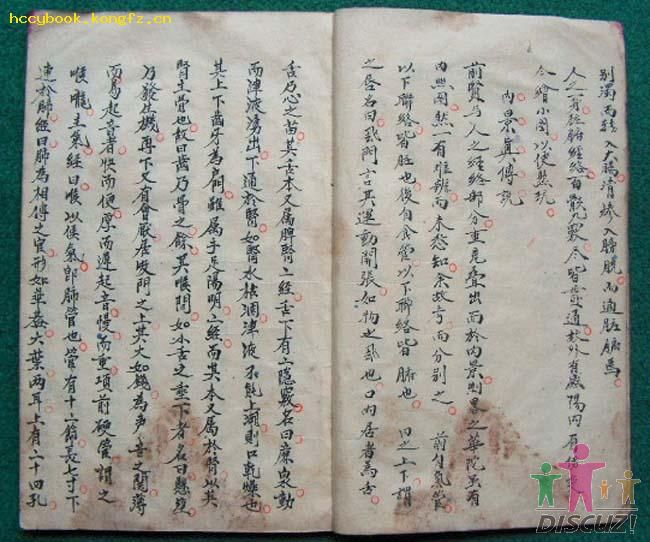 hccybook.kongfz.cn
別濁而轉入大腸清滲入膀胱而通脏腑焉
人之一身脏腑經絡百骸九竅尽皆貫通於外有感陽內有
今繪小圖以便熟玩
內景真傳說
前賢与人之經絡部分重見叠出而於內景則之華院虽有
內照圖然一有难辨而未悉知余故亏而分別之 前自氣管
以下聯絡皆脏也後自食管以下聯絡皆腑也 口之上下謂
之唇名曰飛門言其運動開張如物之飛也口內居者為舌
舌乃心之苗其舌本又属脾腎二經舌下有二隱竅名曰廉泉動
而津液湧出下通於腎如腎水枯涸津液不能上潮則口乾燥也
其上下齒牙為户門雖属手足陽明二經而其本又属於腎以其
腎主骨也故曰齒乃骨之餘其喉間如小舌之垂下者名曰懸雍
乃發生機再下又有會厭居吸門之上其大如錢為声音之関薄
而易起音者快而便厚而遲起音慢而重項前硬管謂之
喉嚨主氣經曰喉以候氣即肺管也管有十二節長七寸下
連於肺經曰肺為相傅之官形如華蓋六葉兩耳上有二十四孔
DISCUZ!